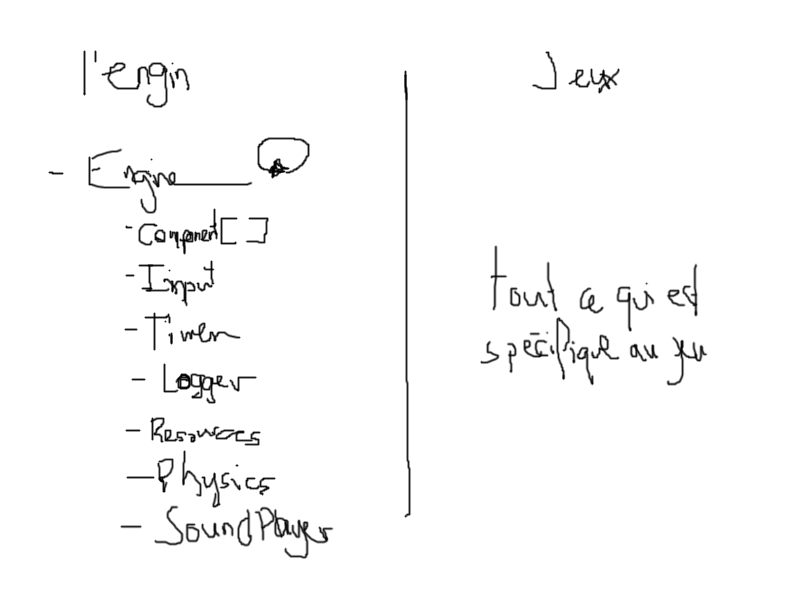 l'engin
- Engine
- Component[ ]
- Input
- Timer
- Logger
- Resources
- Physics
- SoundPlayer
Jeux
tout ce qui est
spécifique au jeu